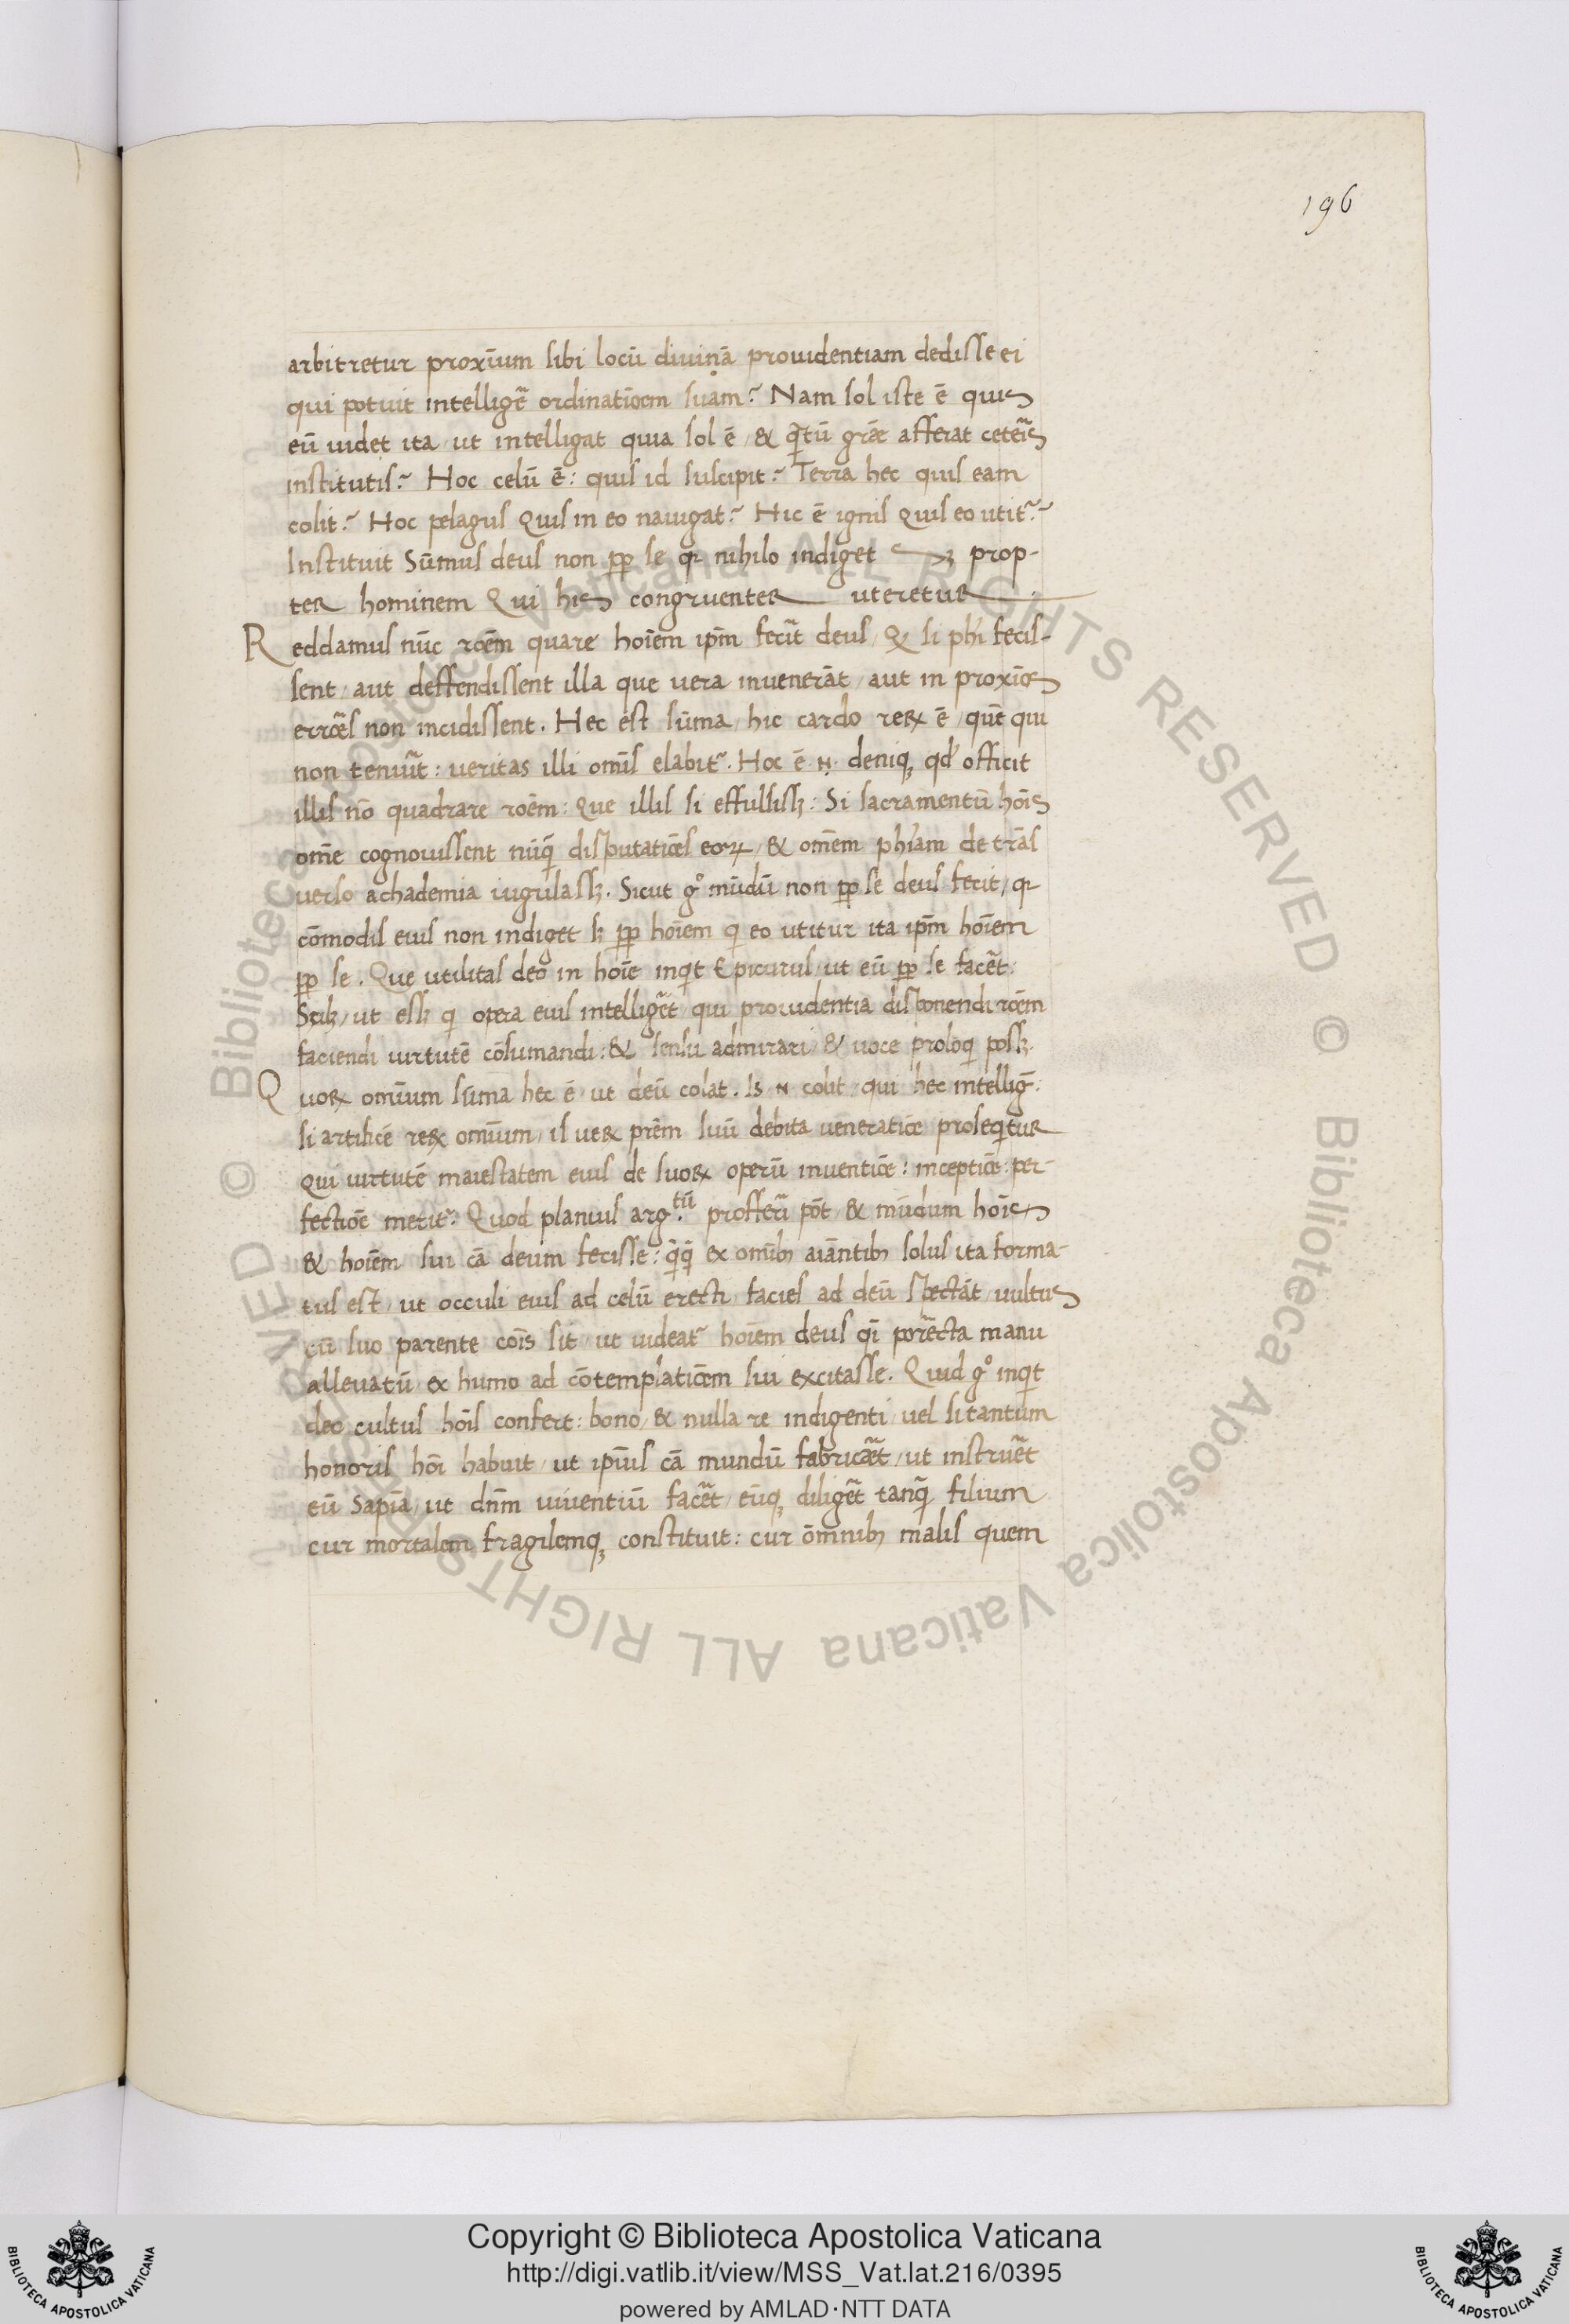 196
arbitretur proxīum sibi locū diuinā prouidentiam dedisse ei
qui potuit intelligẽ ordinatiōem suam? Nam sol iste ē quis
eū uidet ita / ut intelligat quia sol ē / & q̄tū gr̄ae afferat ceteris
institutis? Hoc celū ē: quis id suscipit? Terra hec quis eam
colit? Hoc pelagus Quis in eo nauigat? Hic ē ignis Quis eo utit̃?
Instituit Sūmus deus non ꝓp se qr nihilo indiget sꝫ prop-
ter hominem Qui his congruenter uteretur
Reddamus nūc rōem quare hoīem ip̄m fecit̃ deus / Qđ si ph̄i fecis-
sent / aut deffendissent illa que uera inuenerāt / aut in proxīos
errōes non incidissent. Hec est sūma / hic cardo reꝝ ē / quē qui
non tenuit̃: ueritas illi omīs elabit̃. Hoc ē .N. deniqꝫ qđ officit
illis nō quadrare rōem: Que illis si effulsisꝫ: Si sacramentū hōis
om̄e cognouissent nūq̄ disputatiōes eoꝝ / & om̄em ph̄iam de trās
uerso achademia iugulasꝫ. Sicut gͦ mūdū non ꝓp se deus fecit / qr
cōmodis eius non indiget sꝫ ꝓp hoīem q eo utitur ita ip̄m hoīem
ꝓp se. Que utilitas deo in hoīe inqt Epicurus / ut eū ꝓp se facẽt:
Sciꝫ / ut esꝫ q opera eius intelligẽt / qui prouidentia disponendi rōem
faciendi uirtutē cōsumandi: & sensu admirari / & uoce proloq posꝫ.
Quoꝝ omīum sūma hec ē / ut deū colat. Is .N. colit / qui hec intellig̃:
Is artificē reꝝ omīum / is ueꝝ prēm suū debita ueneratiōe proseqtur
Qui uirtutē maiestatem eius de suoꝝ operū inuentiōe: inceptiōe: per-
fectiōe metit̃. Quod planius arg.tū profferi pōt / & mūdum hōis
& hoīem sui cā deum fecisse: q̄q̄ ex omībꝫ aīantibꝫ solus ita forma-
tus est / ut occuli eius ad celū erecti / facies ad deū spectāt / uultus
cū suo parente cōis sit / ut uideat̃ hoīem deus qī porrecta manu
alleuatū / ex humo ad cōtemplatiōem sui excitasse. Quid gͦ inqt
deo cultus hōis confert: bono / & nulla re indigenti / uel si tantum
honoris hōi habuit / ut ipīus cā mundū fabricãet / ut instruẽt
eū Sapīa / ut dn̄m uiuentiū facẽt / eūqꝫ diligẽt tanq̄ filium
cur mortalem fragilemqꝫ constituit: cur ōmnibꝫ malis quem
© Biblioteca Apostolica Vaticana ALL RIGHTS RESERVED © Biblioteca Apostolica Vaticana ALL RIGHTS RESERVED
BIBLIOTECA APOSTOLICA VATICANA
Copyright © Biblioteca Apostolica Vaticana
http://digi.vatlib.it/view/MSS_Vat.lat.216/0395
powered by AMLAD·NTT DATA
BIBLIOTECA APOSTOLICA VATICANA